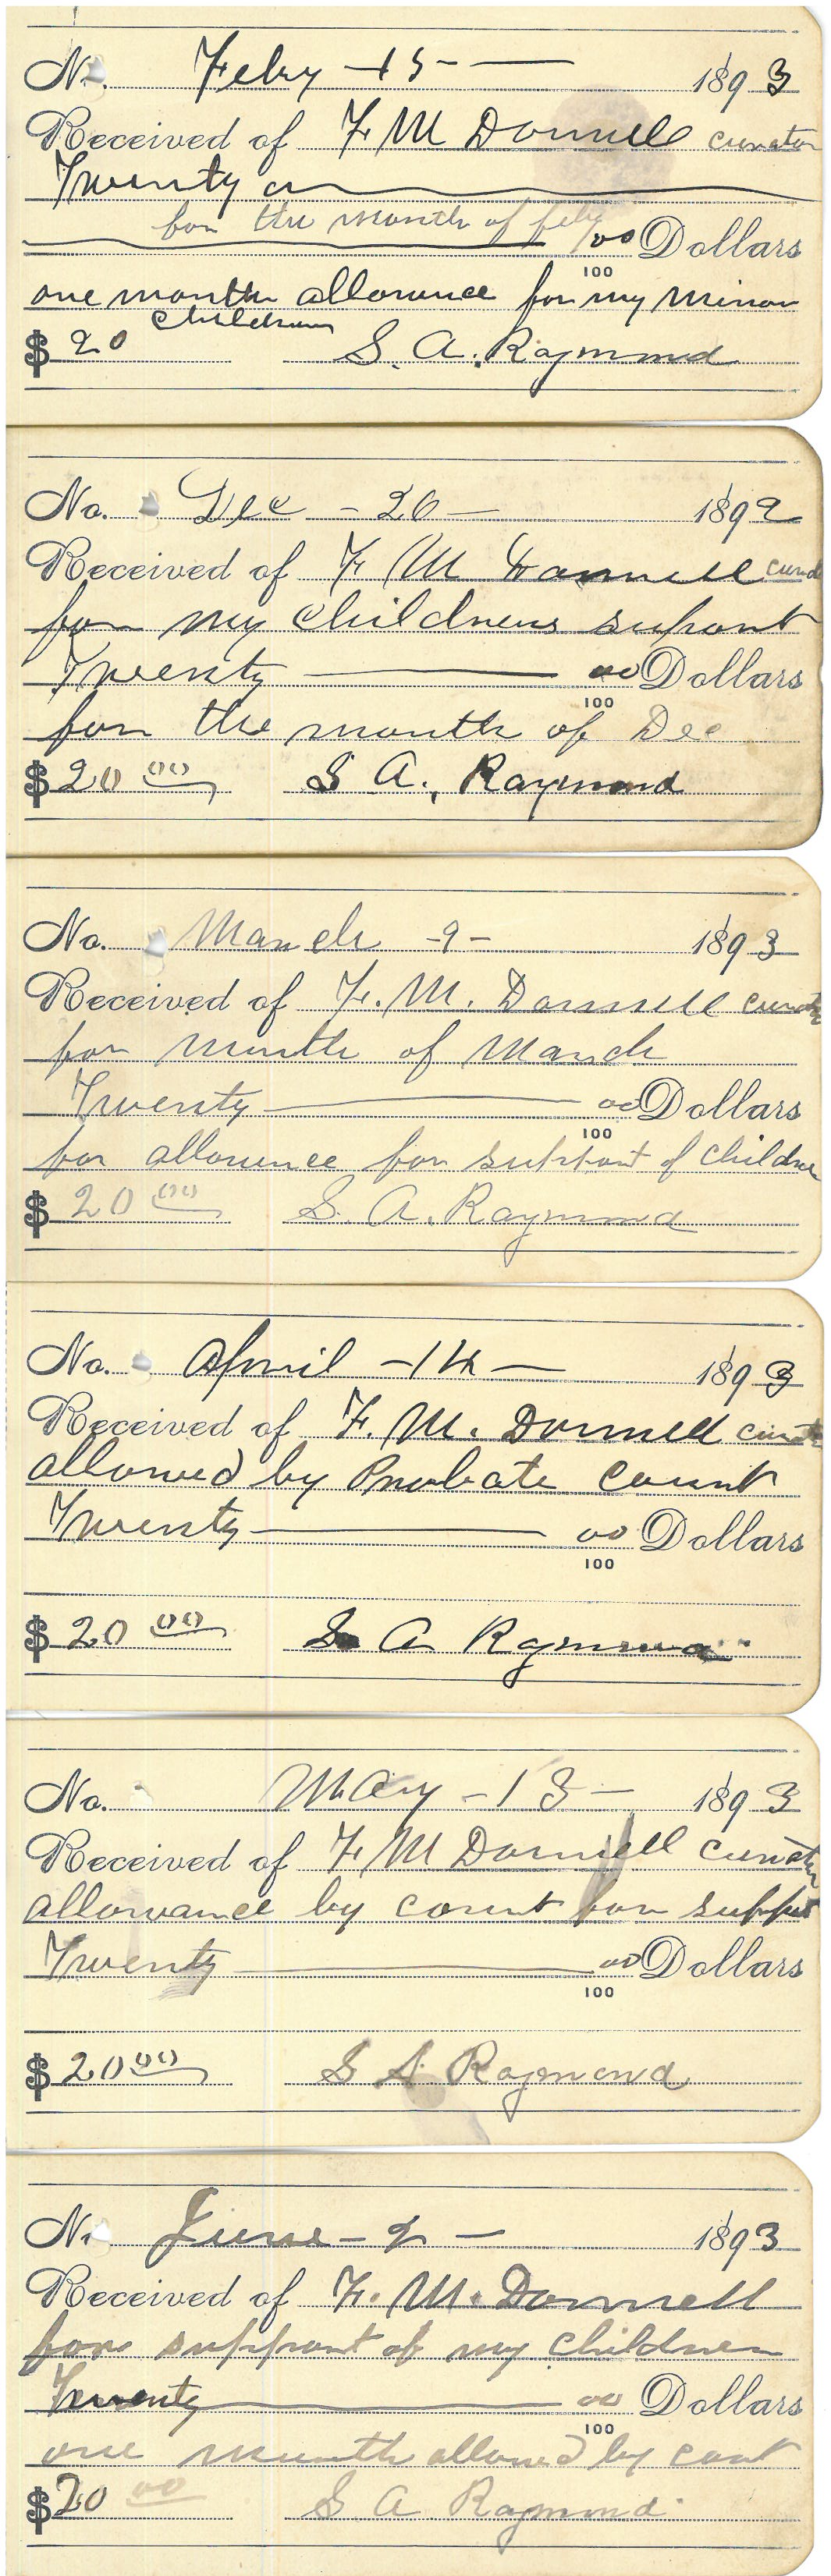 No. Feby - 15 - 1893
Received of F M Donnell curator
Twenty
for the month of feby
00 Dollars
100
one month allowance for my minor
children
$ 20 S. A. Raymond
No. Dec - 20 - 1892
Received of F M Donnell
for my childrens suport
Twenty 00 Dollars
100
for the month of Dec
$ 20 00 S A. Raymond
No. March - 9 - 1893
Received of F. M. Donnell curator
for month of March
Twenty 00 Dollars
100
for allowence for support of childre
$ 20 00 S. A. Raymond
No. April - 14 - 1893
Received of F. M. Donnell
allowed by Probate court
Twenty 00 Dollars
100
$ 20 00 S A Raymond
No. May - 13 - 1893
Received of F M Donnell curator
allowance by court for support
Twenty 00 Dollars
100
$ 20 00 S A Raymond
No. June - 2 - 1893
Received of F. M. Donnell
for support of my children
Twenty 00 Dollars
100
one month allowed by cout
$ 20 00 S A Raymond